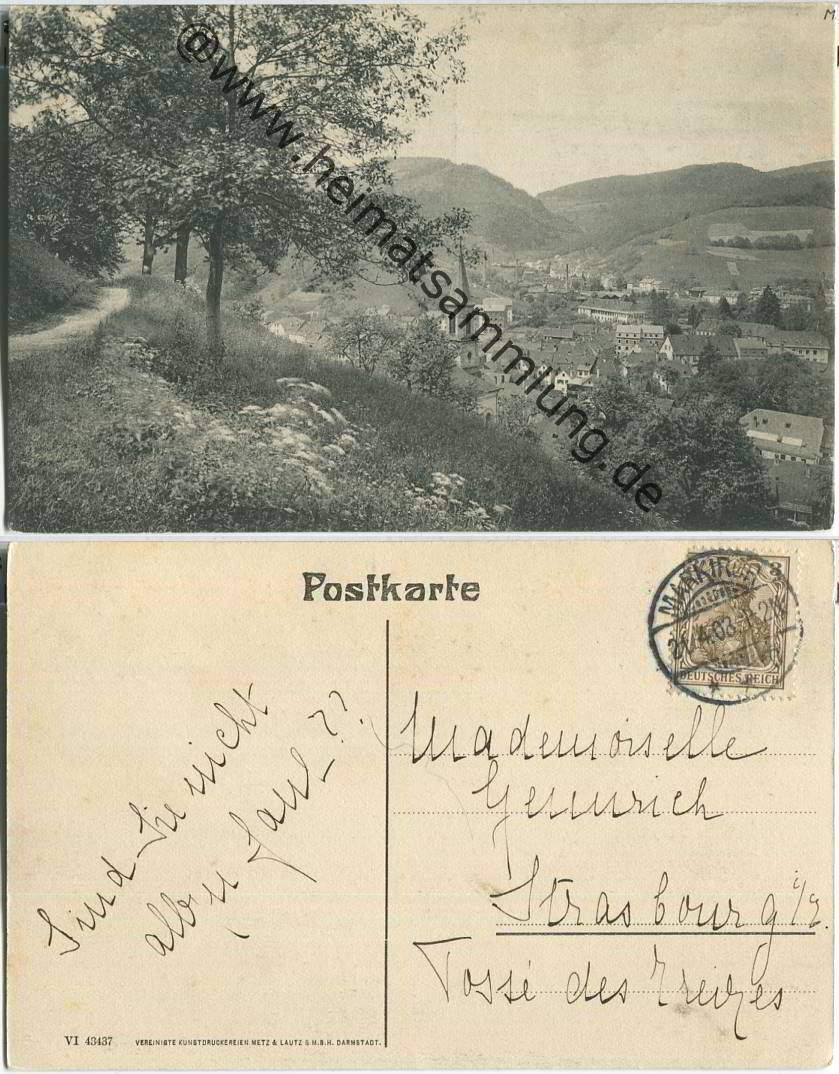 M
@www.heimatsammlung.de
Postkarte
MARKIRCH
3
DEUTSCHES REICH
Sind Sie nicht
faul??
Mademoiselle
Strasbourg i/E.
Fossé des Treizes
VI 43437
VEREINIGTE KUNSTDRUCKEREIEN METZ & LAUTZ G.M.B.H. DARMSTADT.